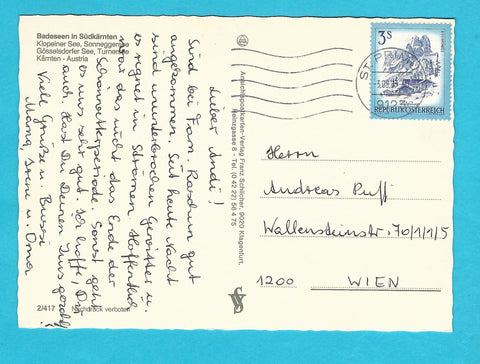 Badeseen in Südkärnten
Klopeiner See, Sonneggersee
Gösselsdorfer See, Turnersee
Kärnten - Austria
Lieber Andi!
Sind bei Fam. gut
angekommen. Seit heute Nacht
sind ununterbrochen Gewitter u.
es regnet in Strömen. Hoffentlich
war das nicht das Ende der
Schönwetterperiode. Sonst geht
es uns sehr gut. Ich hoffe, Dir
auch. Hast Du Deinen
Viele Grüße u. Bussi
Mama, u. Oma
2/417
Nachdruck verboten
Ansichtspostkarten-Verlag Franz Schilcher, 9020 Klagenfurt,
Heinzgasse 8 - Tel. (0 42 22) 56 4 75
3S
REPUBLIK ÖSTERREICH
912
Herrn
Andreas Puff
Wallensteinstr. 70/1/1/5
1200 WIEN